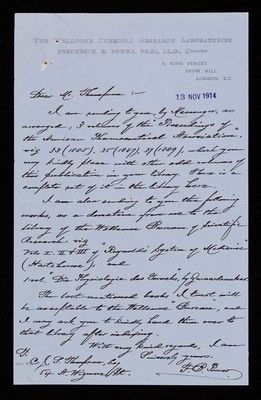 THE WELLCOME CHEMICAL RESEARCH LABORATORIES
FREDERICK B. POWER, PH.D., LL.D., Director
6, KING STREET
SNOW HILL
LONDON, E.C.
13 NOV 1914
Dear Mr. Thompson :—
I am sending to you, by Messenger, as
arranged, 3 volumes of the "Proceedings of
the American Pharmaceutical Association",
viz 33 (1885), 35 (1887), 37 (1889), which you
may kindly place with the other volumes of
this publication in your library. There is a
complete set of it in the library here.
I am also sending to you the following
works, as a donation from me to the
library of the Wellcome Bureau of Scientific
Research viz
Vols I, II & III of "Reynolds' System of Medicine"
(Hartshorne), and
1 vol. "Die Physiologie des Geruchs", by Zwaardemaker.
The last mentioned books I trust, will
be acceptable to the Wellcome Bureau, and
I may ask you to kindly hand them over to
that library after indexing.
With my kind regards, I am
Sincerely yours,
F. B. Power
To
C. J. S. Thompson, Esq
54 A. Wigmore St.